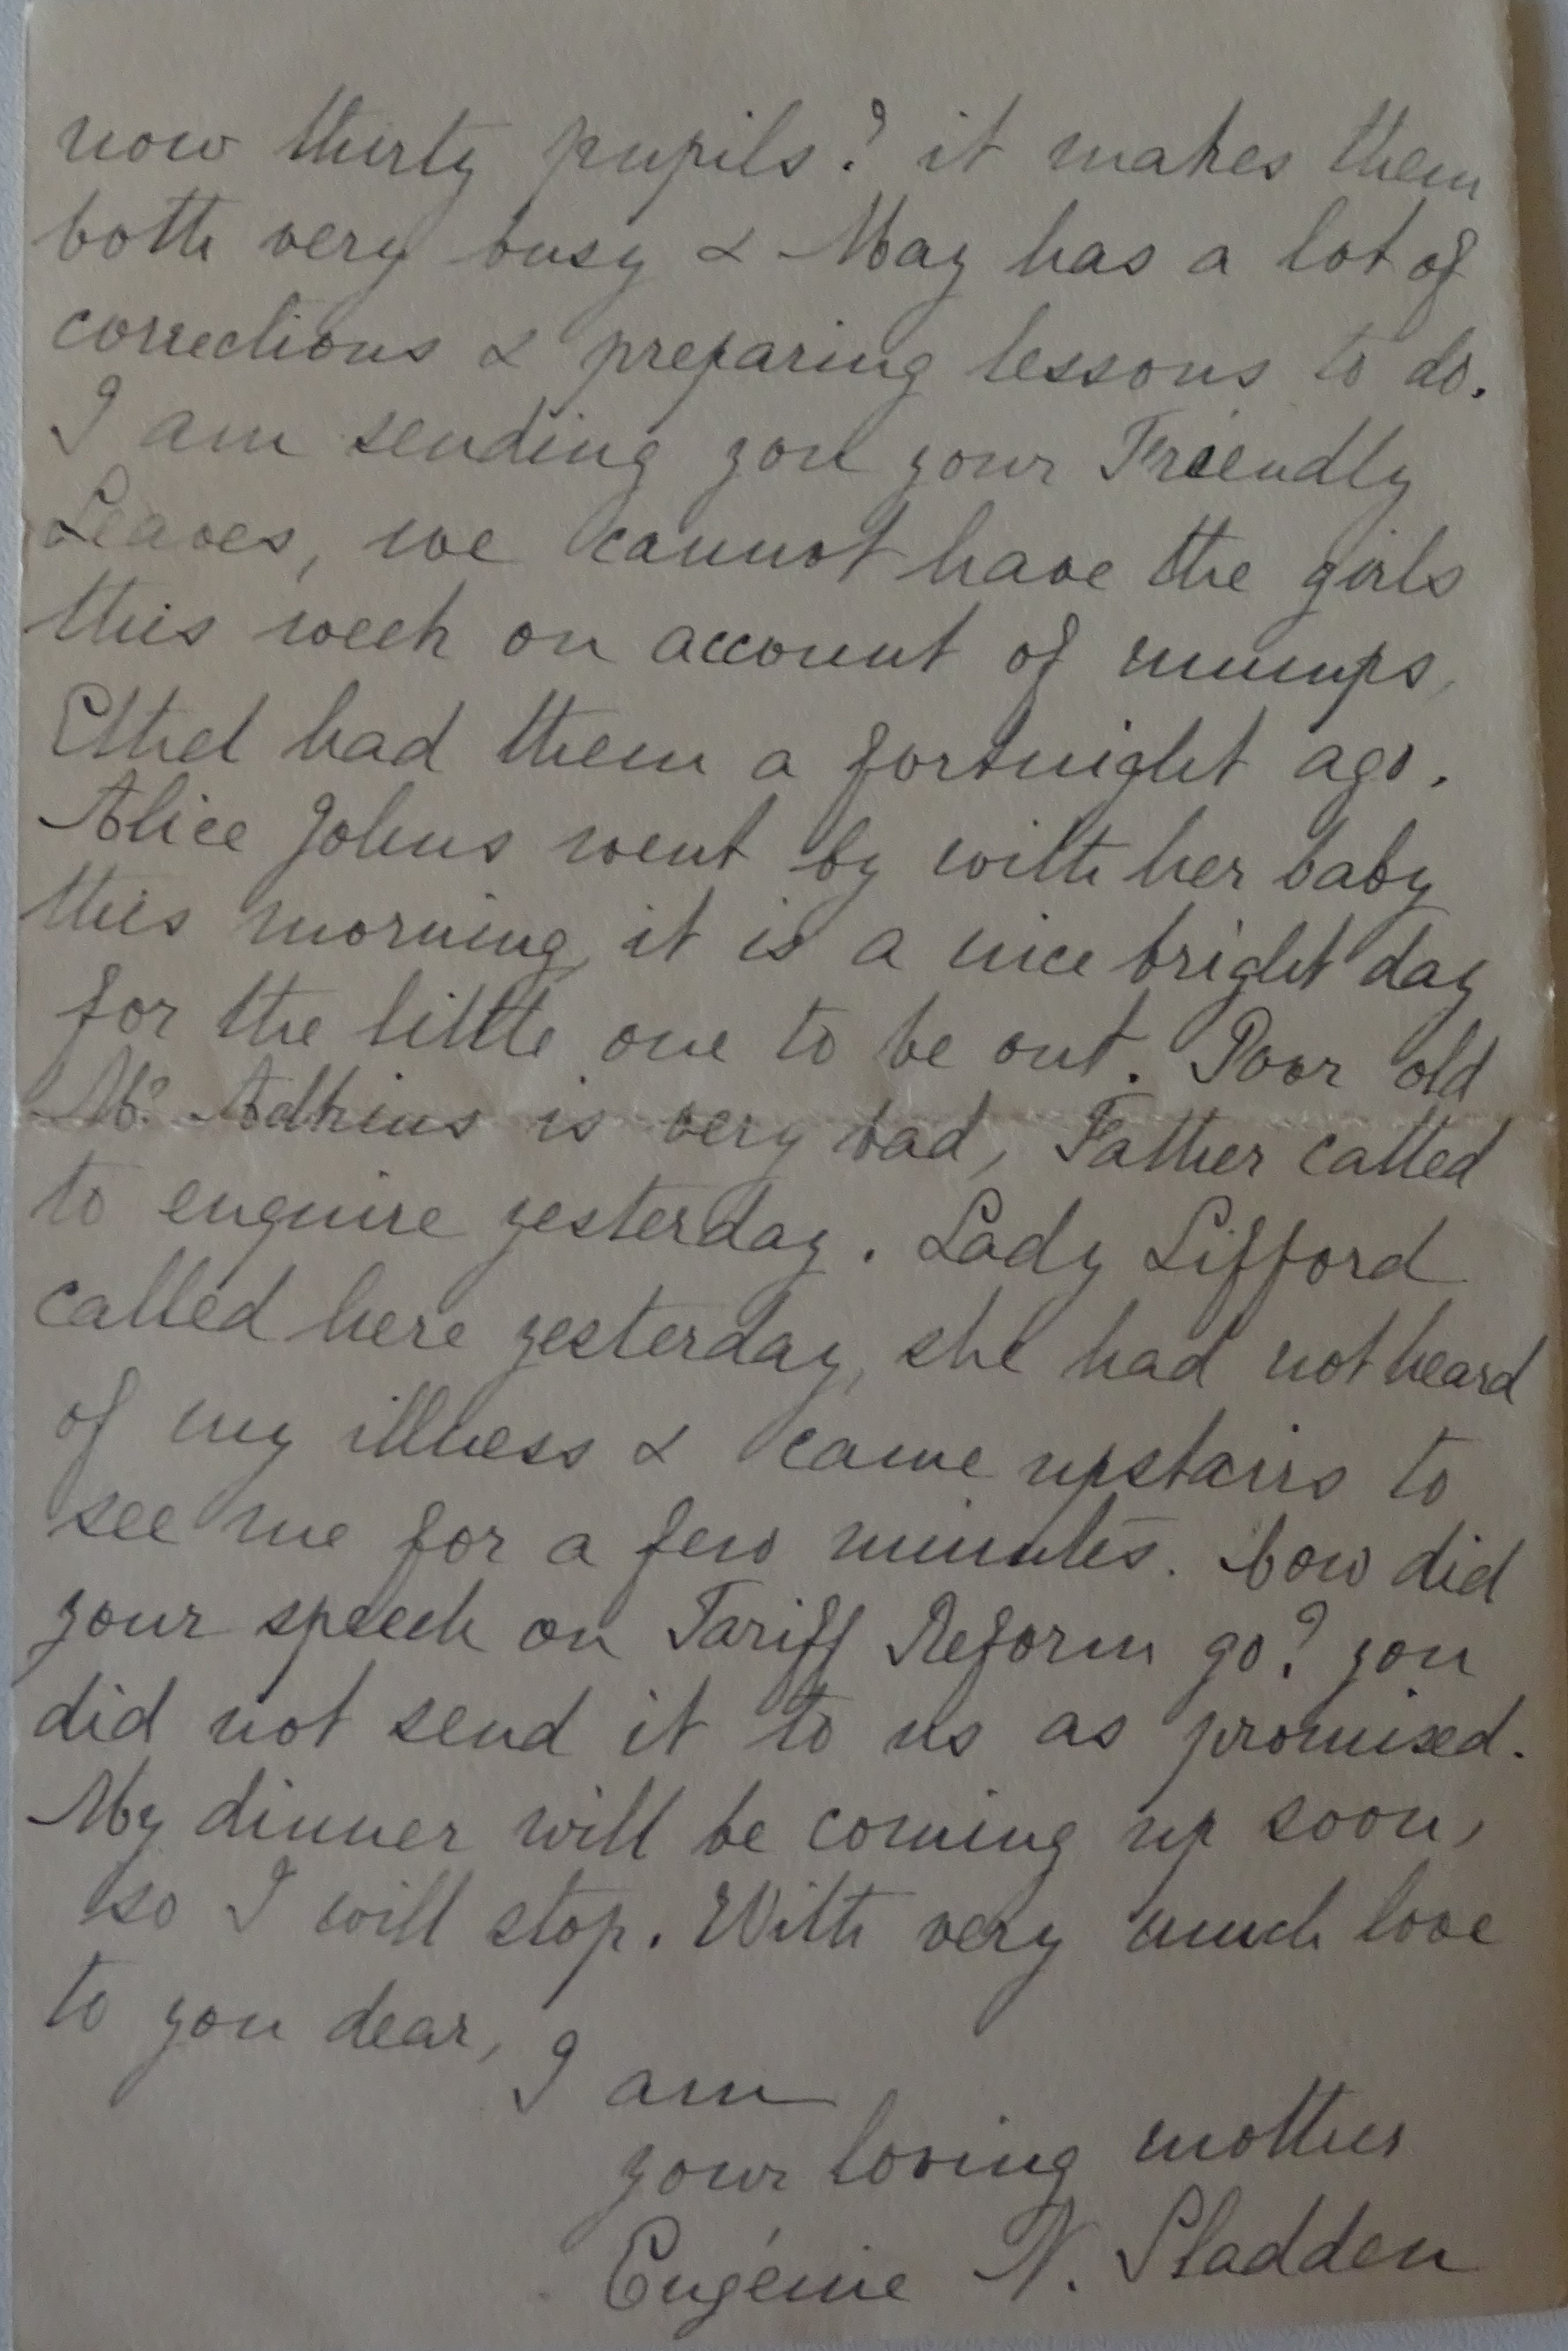 now thirty pupils? it makes them
both very busy & May has a lot of
corrections & preparing lessons to do.
I am sending you your Friendly
Leaves, we cannot have the girls
this week on account of mumps,
Ethel had them a fortnight ago.
Alice Johns went by with her baby
this morning, it is a nice bright day
for the little one to be out. Poor old
Mr. Adkins is very bad, Father called
to enquire yesterday. Lady Lifford
called here yesterday, she had not heard
of my illness & came upstairs to
see me for a few minutes. How did
your speech on Tariff Reform go? you
did not send it to us as promised.
My dinner will be coming up soon,
so I will stop. With very much love
to you dear,
I am
your loving mother
Eugénie N. Sladden